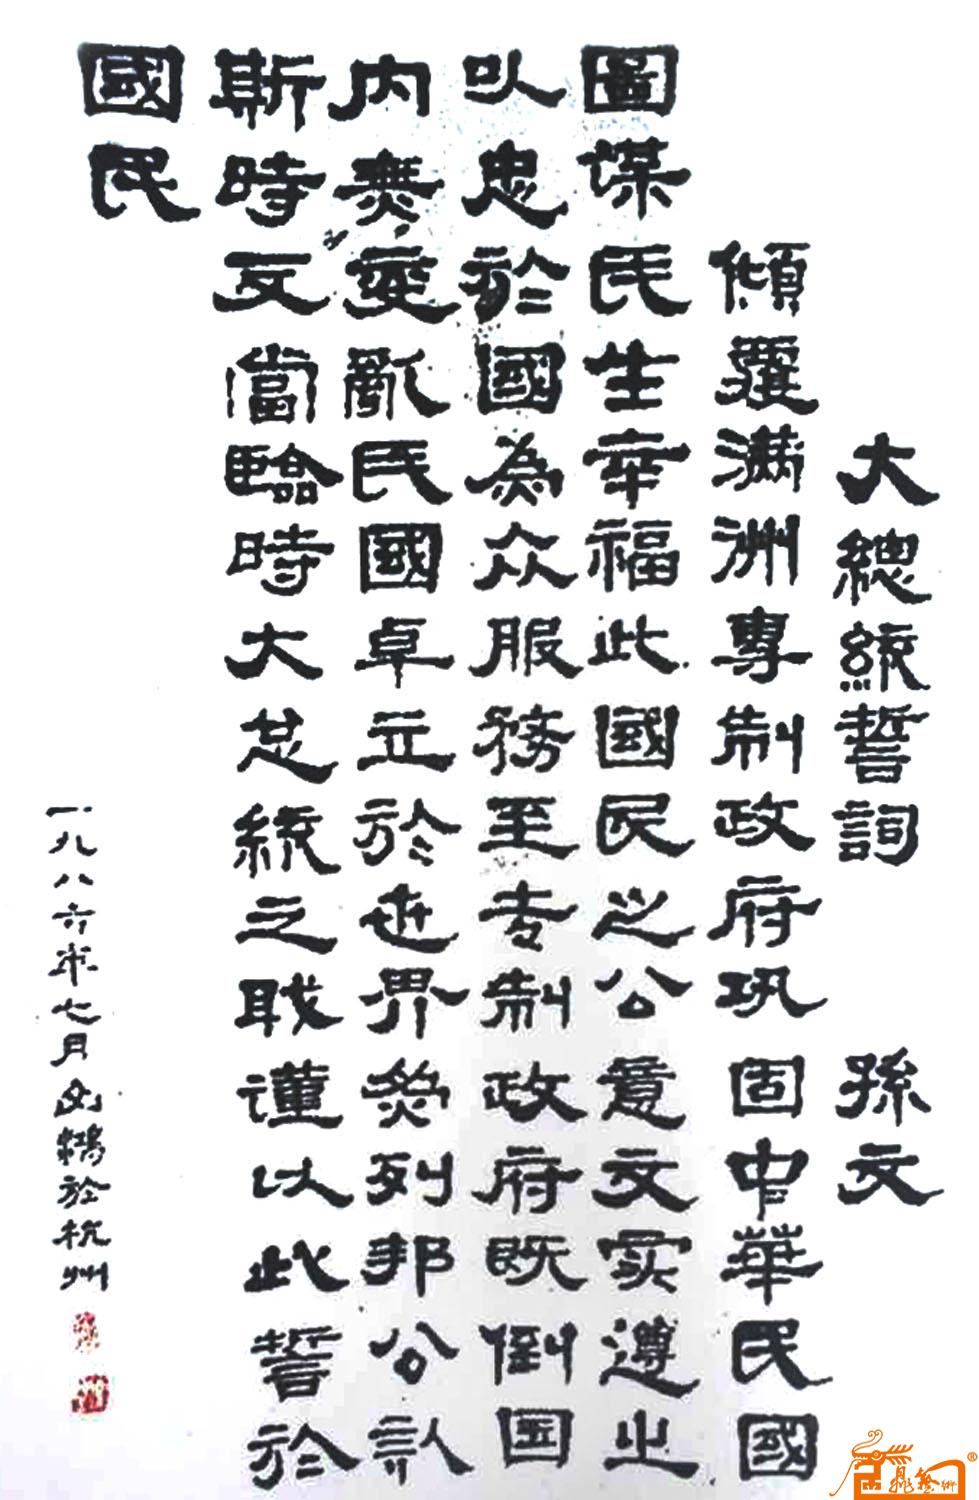 大總統誓詞 孫文
傾覆滿洲專制政府巩固中華民國
圖謀民生幸福此國民之公意文实遵之
以忠於國為众服務至专制政府既倒国
内無變亂民國卓立於世界為列邦公認
斯時文當臨時大总統之職謹以此誓於
國民
一九八六年七月 於杭州